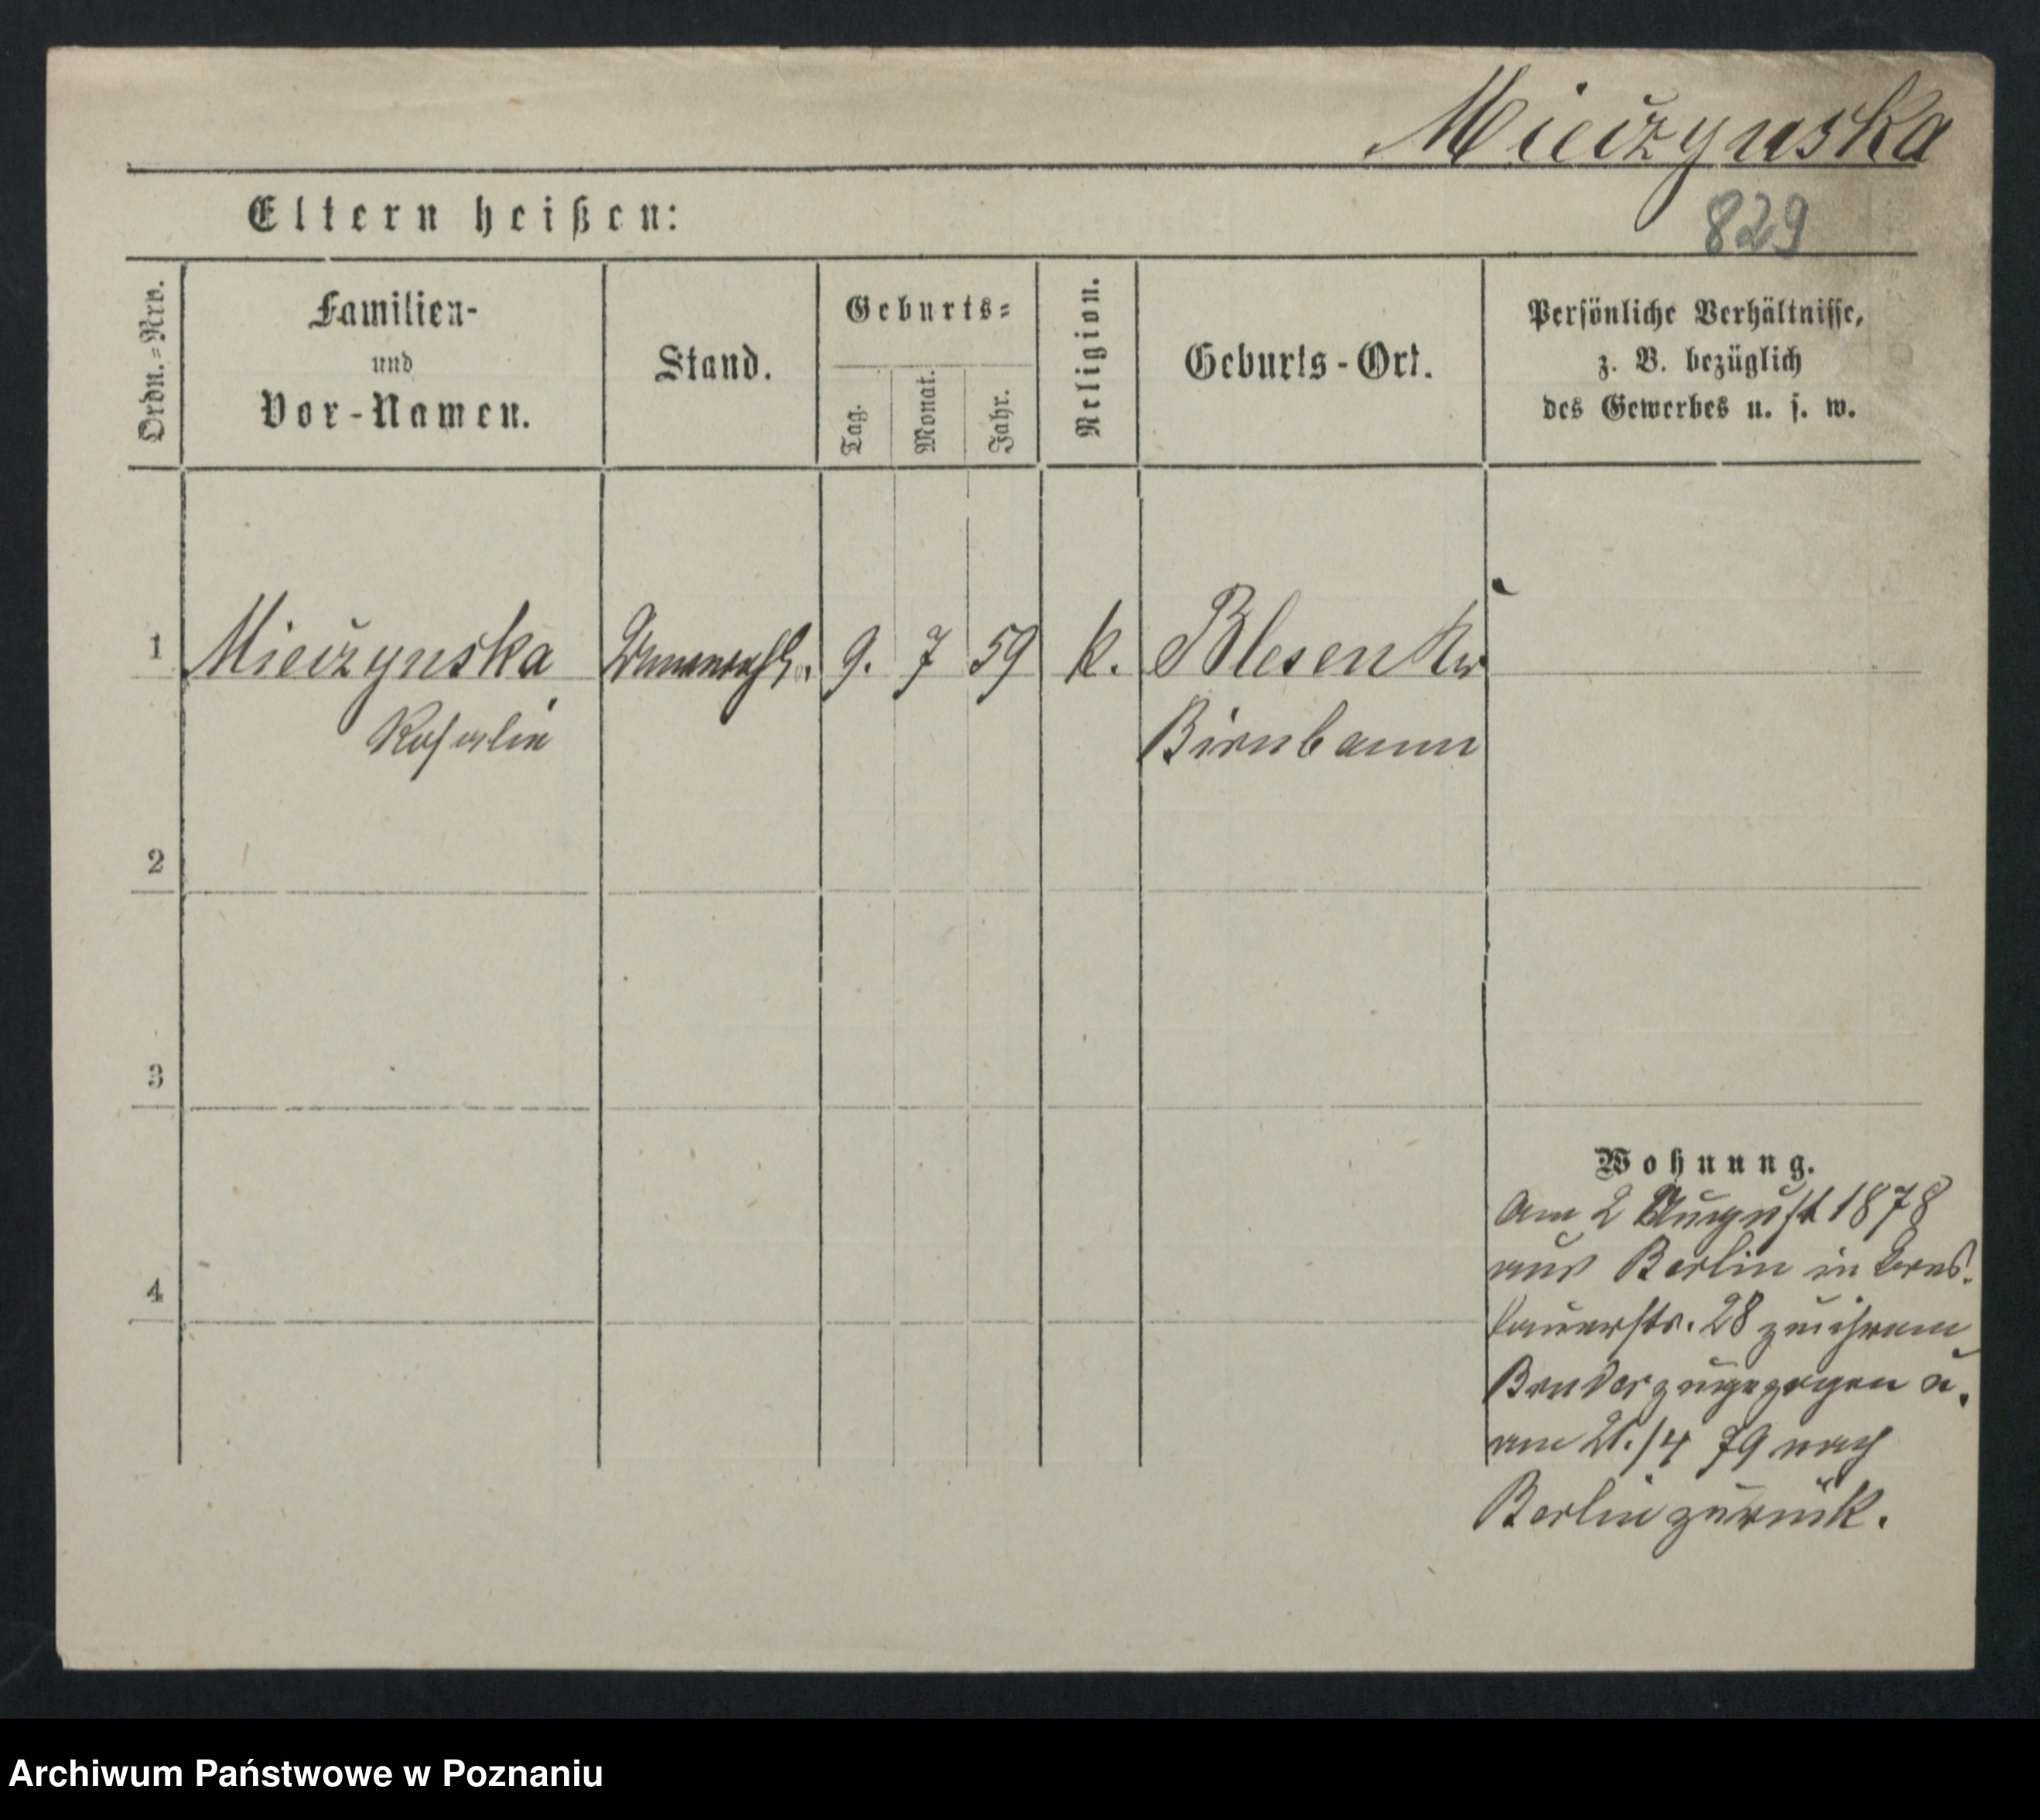 Mieczynska
Eltern heißen:
829
Ordn.=Nro.
Familien-
und
Vor-Namen.
Stand.
Geburts=
Tag.
Monat.
Jahr.
Religion.
Geburts-Ort.
Persönliche Verhältnisse,
z. B. bezüglich
des Gewerbes u. s. w.
1 Mieczynska 9. 7 59 k. Blesen Kr
Birnbaum
2
3
4
Wohnung.
Am 2 August 1878
aus Berlin in Bres.
lauerstr. 28 zu ihrem
Bruder zugezogen u.
am 21./4 79 nach
Berlin zurück.
Archiwum Państwowe w Poznaniu